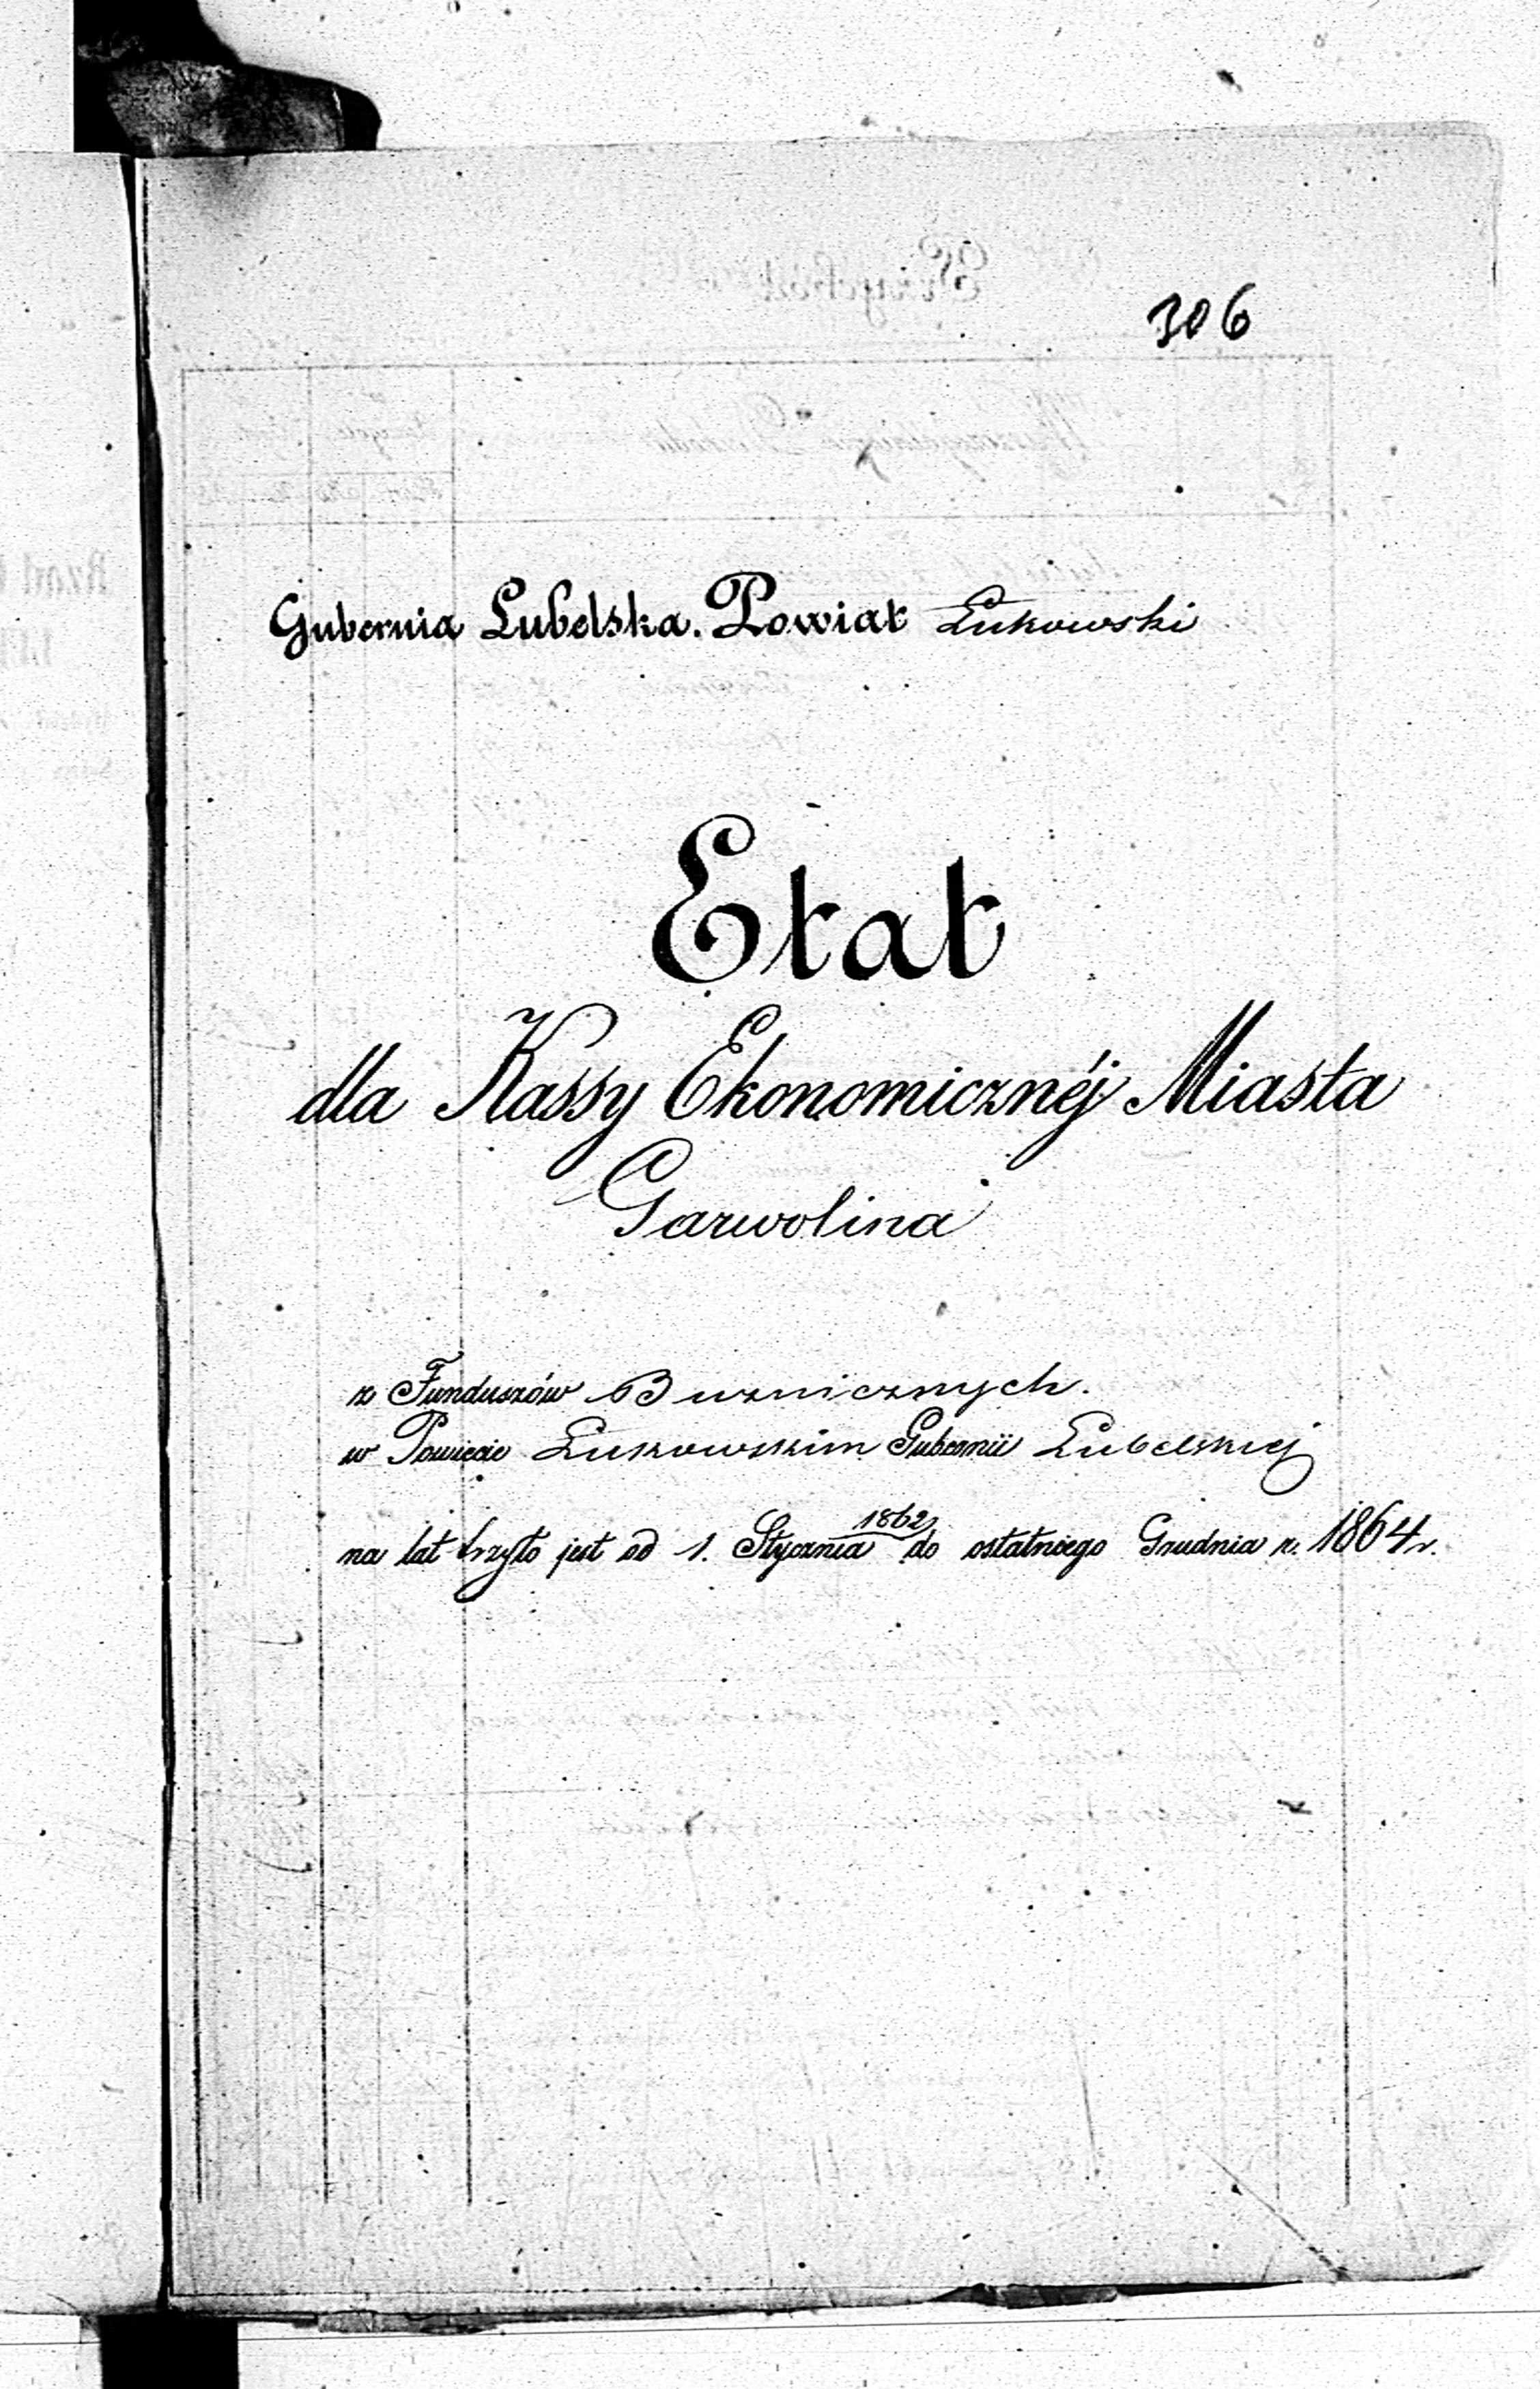 306
Gubernia Lubelska. Powiat Łukowski
Etat
dla Kassy Ekonomicznéj Miasta
Garwolina
z Funduszów Buznicznych.
w Powiecie Łukowskim Gubernii Lubelskiej
1862
na lat trzy to jest od 1. Stycznia do ostatniego Grudnia r. 1864 r.